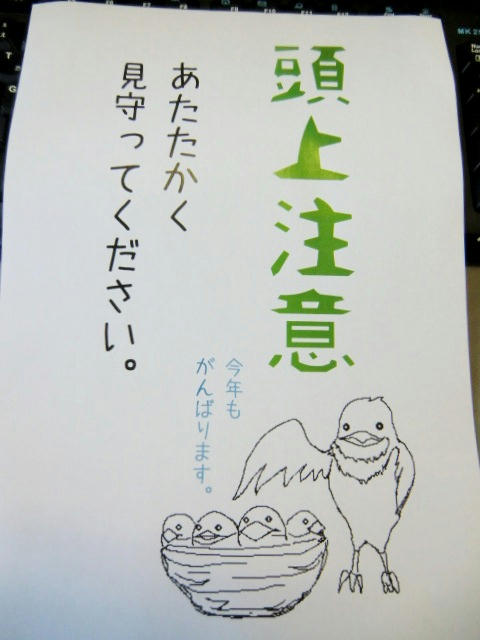 頭上注意
あたたかく
見守ってください。
今年も
がんばります。